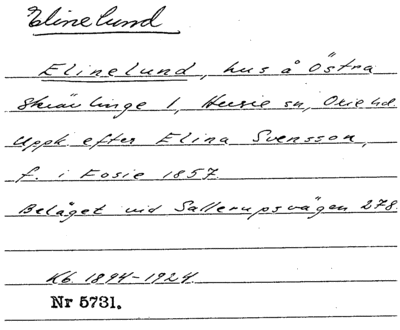 Elinelund
Elinelund, hus å Östra
Skrävlinge 1, Husie sn, Oxie hd.
Uppk. efter Elina Svensson,
f. i Fosie 1857.
Beläget vid Sallerupsvägen 278.
Kb. 1894-1924.
Nr 5731.